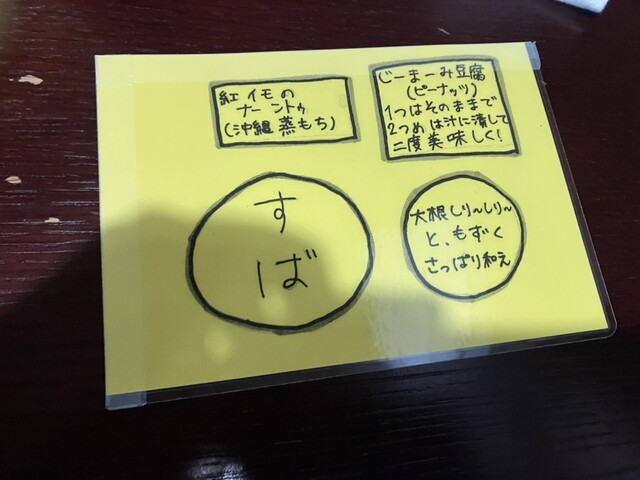 紅イモの
ナーントゥ
(沖縄蒸もち)
じーまーみ豆腐
(ピーナッツ)
1つはそのままで
2つめは汁に漬して
二度美味しく!
す
ば
大根しり〜しり〜
と、もずく
さっぱり和え